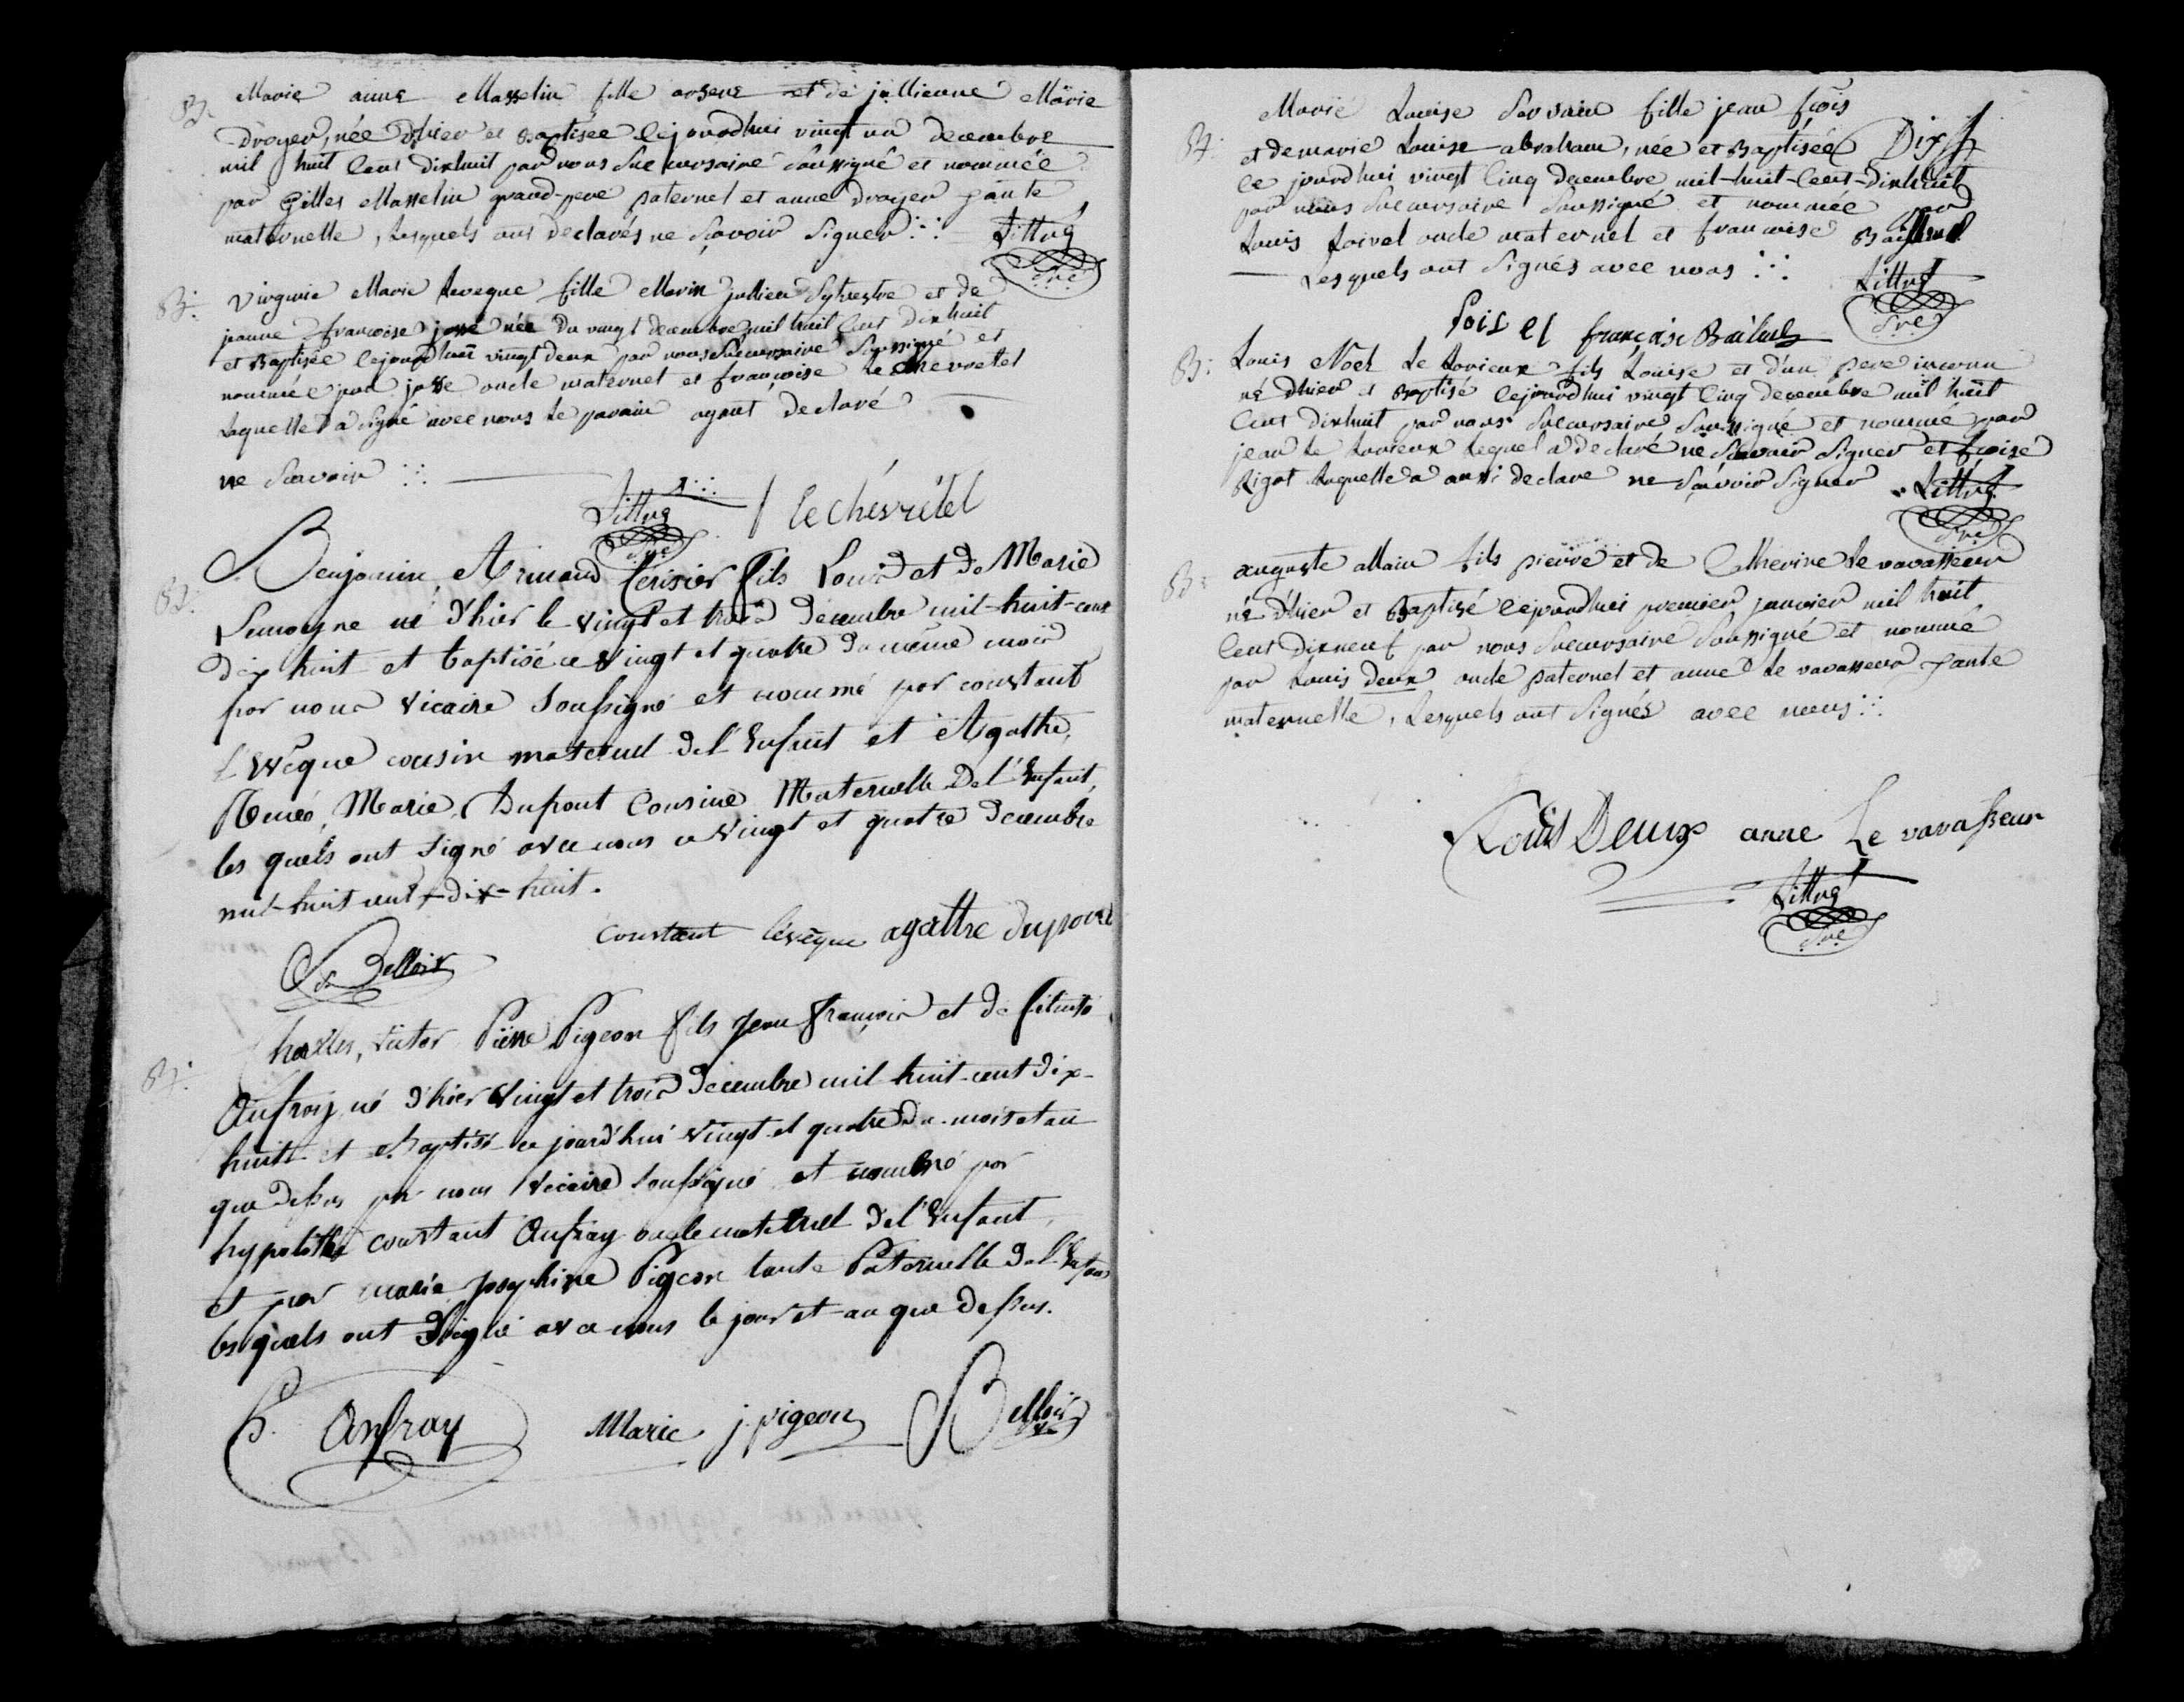 B. Marie anne Masselin fille arsene et de jullienne Marie
Droyer, née d'hier et Baptisée cejourdhui vingt un decembre
mil huit Cent dixhuit par nous Succursaire Soussigné et nommée
par Gilles Masselin grand-pere paternel et anne Droyer tante
maternelle, lesquels ont declarés ne Sçavoir Signer
Sre
B. Virginie Marie leveque fille Marin jullien Sylvestre et de
jeanne françoise josse née du vingt decembre mil huit Cent dixhuit
et Baptisée cejourdhui vingt deux par nous Succursaire Soussigné et
nommée par josse oncle maternel et françoise le chevretel
laquelle a Signé avec nous le parain ayant declaré
ne Scavoir
Sre
f le chevrétel
B. Benjamin, Armand Cerisier fils Louis et de Marie
né d'hier le vingt et trois décembre mil-huit-cent
dix huit et baptisé ce vingt et quatre du même mois
par nous vicaire soussigné et nommé par constant
L'évêque cousin maternel de l'enfant et Agathe,
Marie, Dupont Cousine Maternelle de l'enfant,
les quels ont signé avec nous ce vingt et quatre decembre
mil-huit cent-dix-huit.
constant lévêque agathe dupont
B. Charles, victor Pierre Pigeon fils jean françois et de
Anfray né d'hier vingt et trois decembre mil-huit-cent dix-
huit et Baptisé ce jourd'hui vingt et quatre du mois et an
que dessus par nous vicaire soussigné et nommé par
hypolithe constant Anfray oncle maternel de l'enfant
et par marie josephine Pigeon tante Paternelle de l'enfant
lesquels ont signé avec nous le jour et an que dessus.
Anfray Marie j. pigeon
B. Marie Louise fille jean frçois
et de marie Louise abraham, née et Baptisée
ce jourdhui vingt Cinq decembre mil-huit-Cent-dixhuit
par nous Succursaire Soussigné et nommée par
Louis Loivel oncle maternel et francoise
Lesquels ont Signés avec nous
Sre
françoise
B. Louis Noel Le fils Louise et d'un pere inconnu
né d'hier et Baptisé cejourdhui vingt Cinq decembre mil huit
Cent dixhuit par nous Succursaire Soussigné et nommé par
jean le lequel a declaré ne Sçavoir Signer et fçoise
Rigot laquelle a aussi declaré ne Sçavoir Signer
Sre
B. auguste allain fils pierre et de Catherine le vavasseur
né d'hier et Baptisé cejourdhui premier janvier mil huit
Cent dixneuf par nous Succursaire Soussigné et nommé
par Louis deux oncle paternel et anne le vavasseur tante
maternelle, Lesquels ont Signés avec nous
Louis Deux anne Le vavasseur
Sre